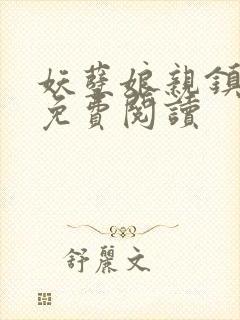 妖孽娘親鎮
免費閱讀
舒麗文